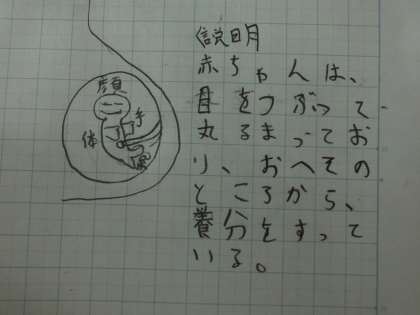 説明
赤ちゃんは、
目をつぶって
丸るまってお
り、おへその
ところから、
養分をすって
いる。
顔
手
体